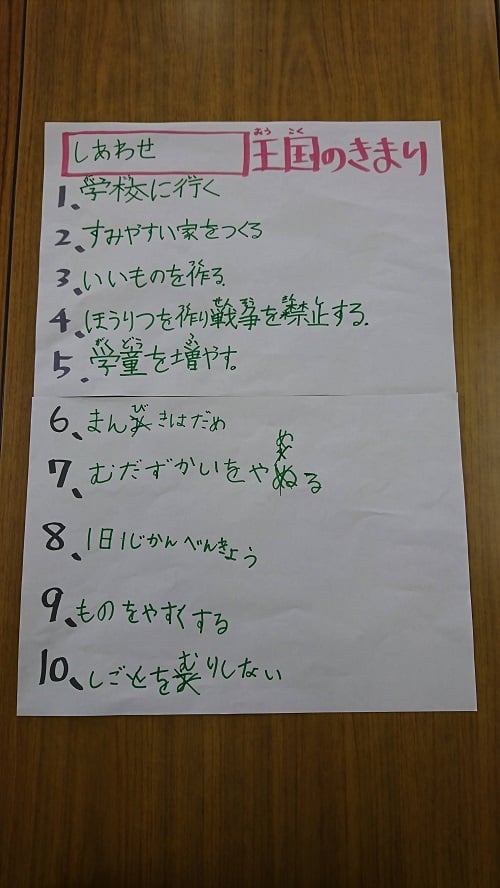 しあわせ王国のきまり
1、学校に行く
2、すみやすい家をつくる
3、いいものを作る.
4、ほうりつを作り戦争を禁止する.
5、学童を増やす。
6、まんびきはだめ
7、むだずかいをやめる
8、1日1じかんべんきょう
9、ものをやすくする
10、しごとをむりしない